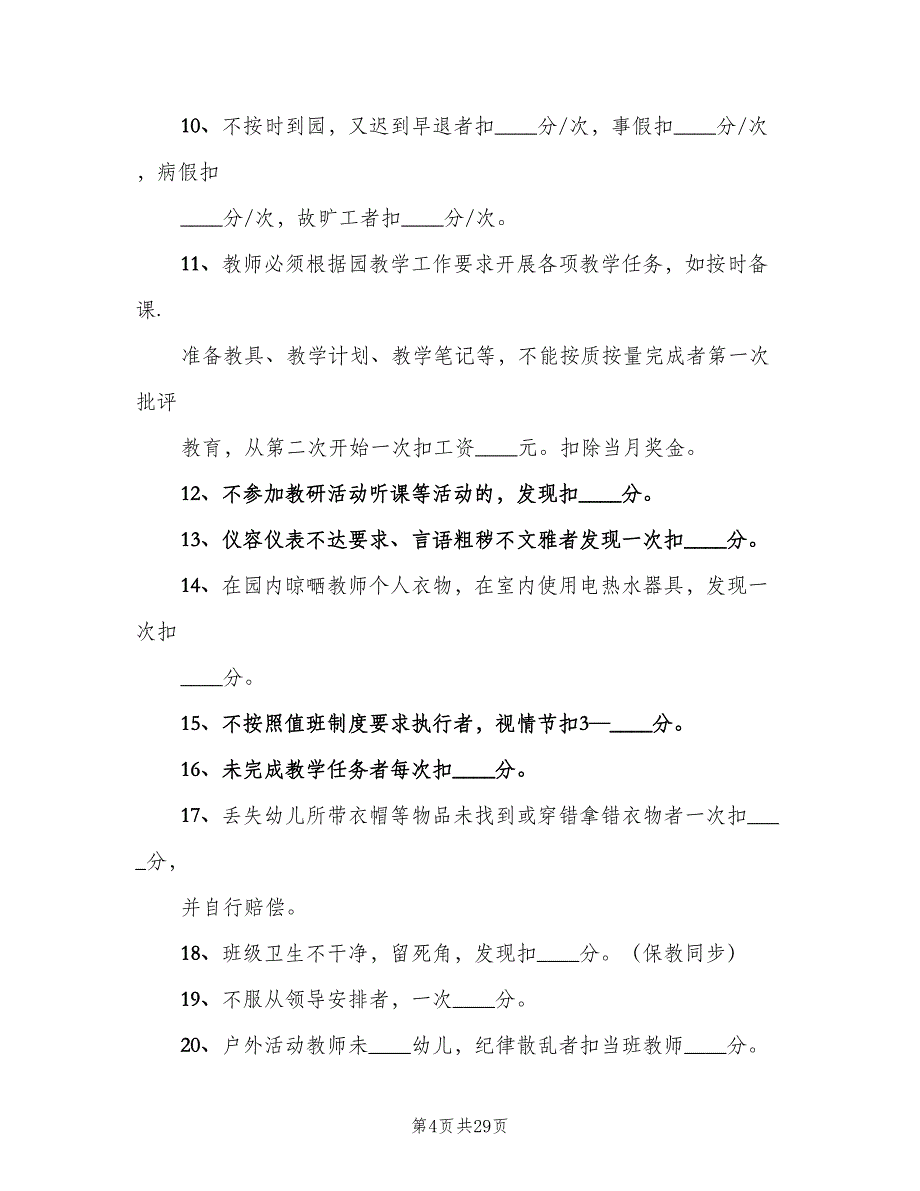 10、不按时到园，又迟到早退者扣____分/次，事假扣____分/次
，病假扣
____分/次，故旷工者扣____分/次。
11、教师必须根据园教学工作要求开展各项教学任务，如按时备
课.
准备教具、教学计划、教学笔记等，不能按质按量完成者第一次
批评
教育，从第二次开始一次扣工资____元。扣除当月奖金。
12、不参加教研活动听课等活动的，发现扣____分。
13、仪容仪表不达要求、言语粗秽不文雅者发现一次扣____分。
14、在园内晾晒教师个人衣物，在室内使用电热水器具，发现一
次扣
____分。
15、不按照值班制度要求执行者，视情节扣3—____分。
16、未完成教学任务者每次扣____分。
17、丢失幼儿所带衣帽等物品未找到或穿错拿错衣物者一次扣___
_分，
并自行赔偿。
18、班级卫生不干净，留死角，发现扣____分。（保教同步）
19、不服从领导安排者，一次____分。
20、户外活动教师未____幼儿，纪律散乱者扣当班教师____分。
第4页共29页